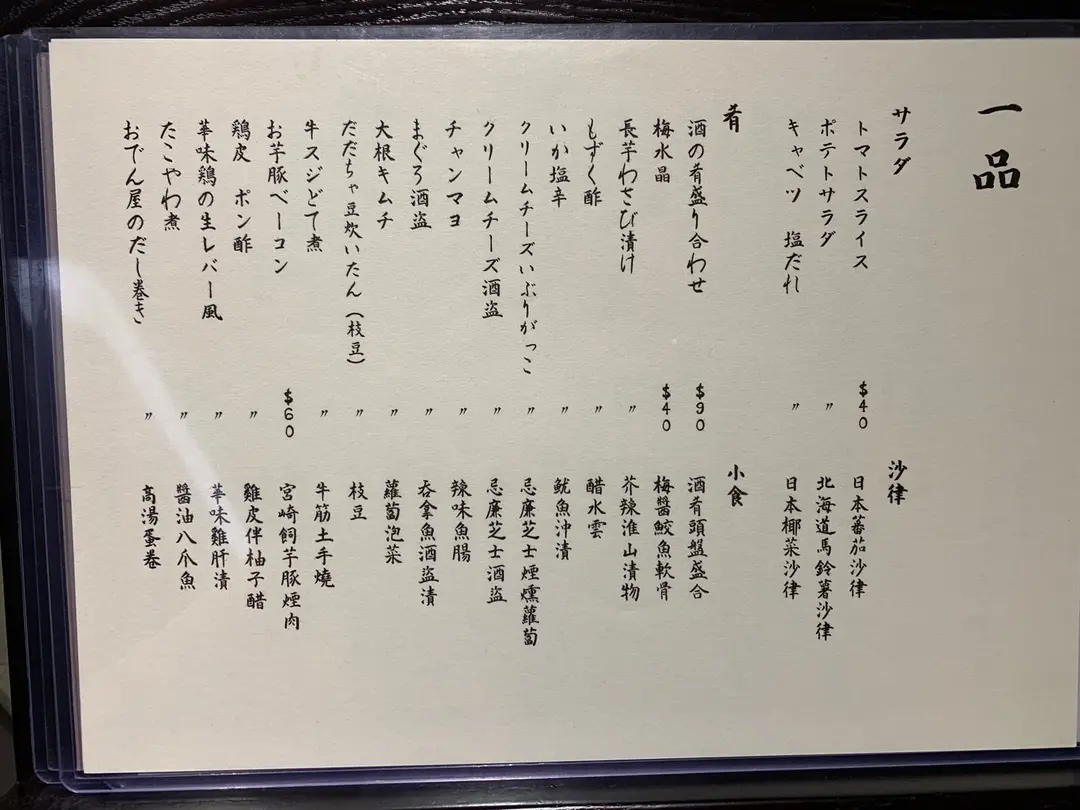 一品
サラダ 沙律
トマトスライス $40 日本蕃茄沙律
ポテトサラダ 〃 北海道馬鈴薯沙律
キャベツ 塩だれ 〃 日本椰菜沙律
肴 小食
酒の肴盛り合わせ $90 酒肴頭盤盛合
梅水晶 $40 梅醬鮫魚軟骨
長芋わさび漬け 〃 芥辣淮山漬物
もずく酢 〃 醋水雲
いか塩辛 〃 魷魚沖漬
クリームチーズいぶりがっこ 〃 忌廉芝士煙燻蘿蔔
クリームチーズ酒盗 〃 忌廉芝士酒盗
チャンマヨ 〃 辣味魚腸
まぐろ酒盗 〃 吞拿魚酒盗漬
大根キムチ 〃 蘿蔔泡菜
だだちゃ豆炊いたん（枝豆） 〃 枝豆
牛スジどて煮 〃 牛筋土手燒
お芋豚ベーコン $60 宮崎飼芋豚煙肉
鶏皮 ポン酢 〃 雞皮伴柚子醋
華味鶏の生レバー風 〃 華味雞肝漬
たこやわ煮 〃 醬油八爪魚
おでん屋のだし巻き 〃 高湯蛋卷